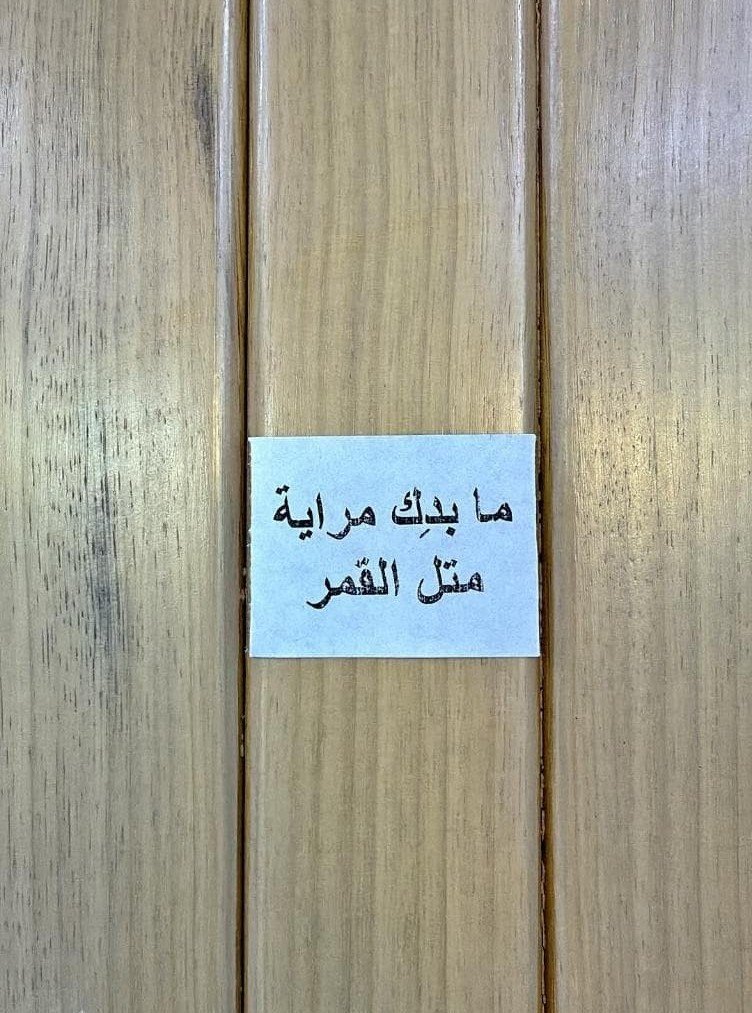 ما بدِك مراية
متل القّمر